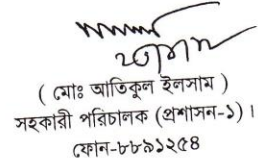 ( মোঃ আতিকুল ইলসাম )
সহকারী পরিচালক (প্রশাসন-১)।
ফোন-৮৮৯১২৫৪